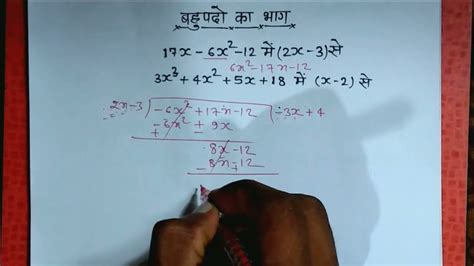 बहुपदो का भाग
17x - 6x² - 12 में (2x - 3) से
6x² - 17x - 12
3x³ + 4x² + 5x + 18 में (x - 2) से
2x - 3 ) - 6x² + 17x - 12 ( - 3x + 4
- 6x² + 9x
+ -
8x - 12
8x - 12
- +